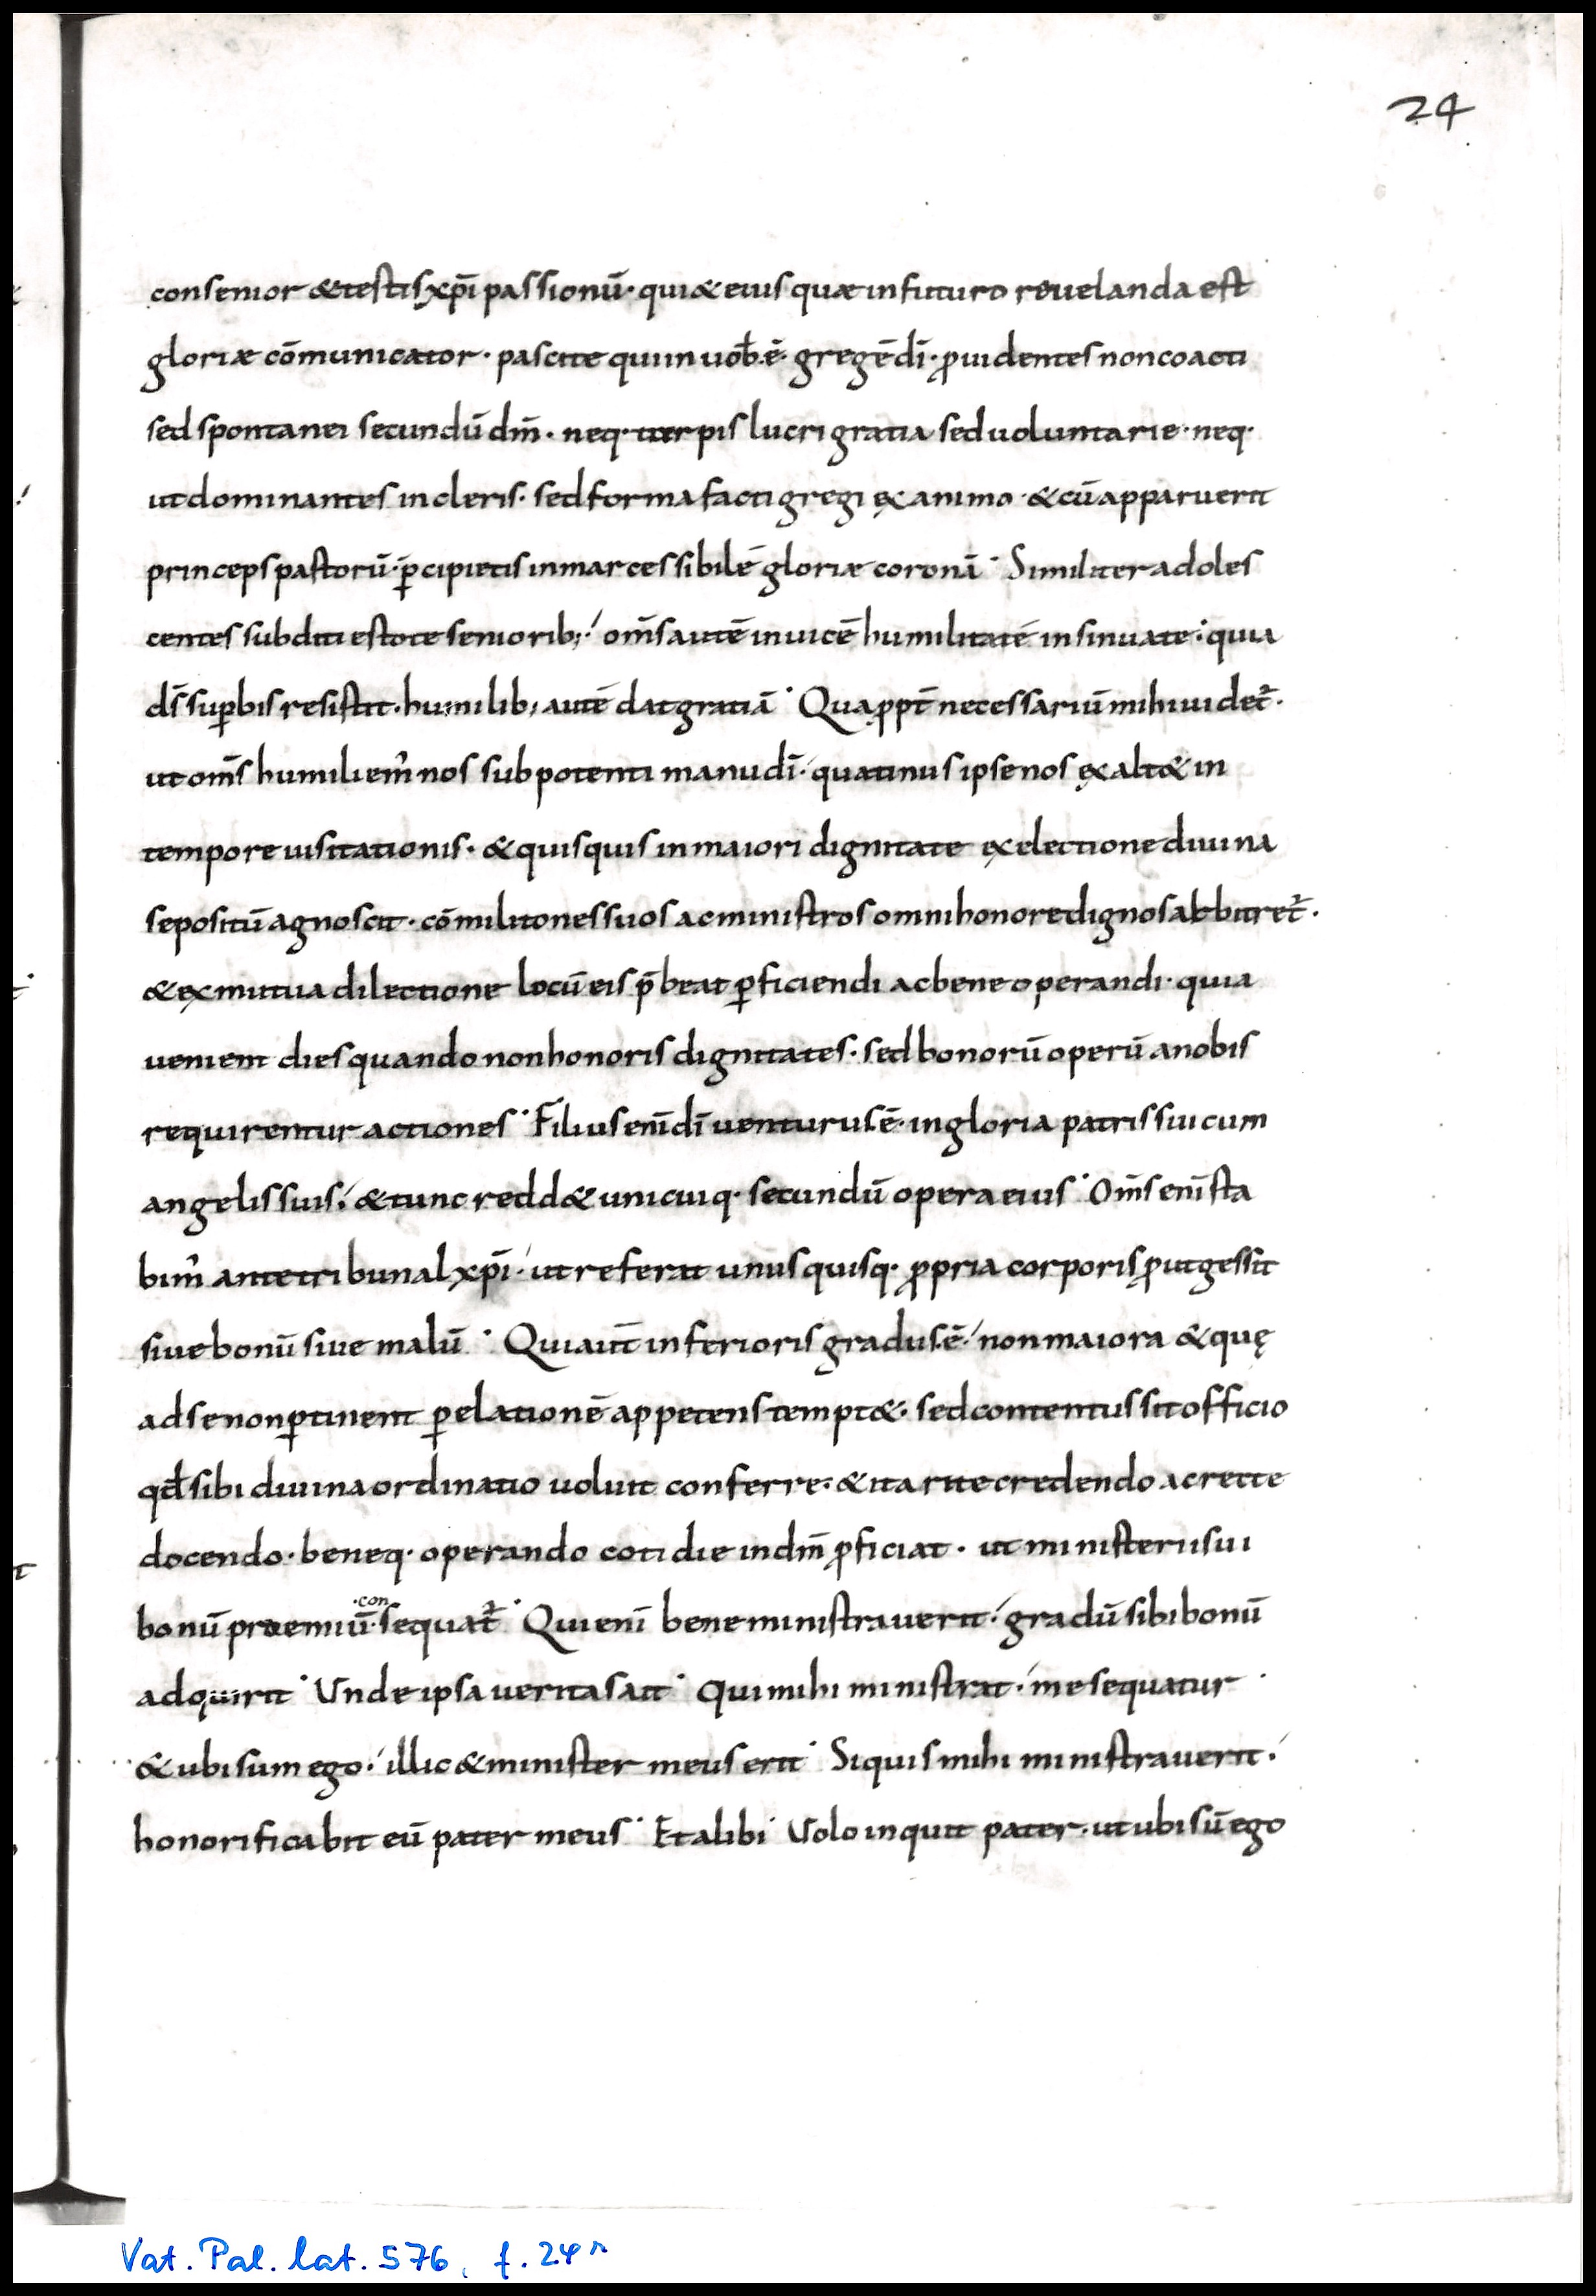 24
consenior & testis xp̄i passionū· qui & eius quae in futuro reuelanda est
gloriæ cōmunicator· pascite qui in uob̄·ē· gregē dī· ꝓuidentes non coacti
sed spontanei secundū dm̄· neq· turpis lucri gratia sed uoluntarie· neq·
ut dominantes in cleris· sed forma facti gregi ex animo· & cū apparuerit
princeps pastorū· p̄cipietis inmarcessibilē gloriæ coronā· Similiter adoles
centes subditi estote seniorib;· om̄s autē inuicē humilitatē insinuate· quia
ds̄ suꝑbis resistit· humilib; autē dat gratiā· Quaꝓpt̄ necessariū mihi uidet̄·
ut om̄s humiliem̄ nos sub potenti manu dī· quatinus ipse nos exalt& in
tempore uisitationis· & quisquis in maiori dignitate ex electione diuina
sepositū agnoscit· cōmilitones suos ac ministros omni honore dignos arbitret̄·
& ex mutua dilectione locū eis p̄beat ꝑficiendi ac bene operandi· quia
uenient dies quando non honoris dignitates· sed bonorū operū a nobis
requirentur actiones· Filius enī dī uenturus ē· in gloria patris sui cum
angelis suis· & tunc redd& unicuiq· secundū opera eius· Om̄s enī sta
bim̄ ante tribunal xp̄i· ut referat unusquisq· ꝓpria corporis ꝓut gessit
siue bonū siue malū· Qui aut̄ inferioris gradus ē· non maiora & quę
ad se non ꝑtinent ꝑ elationē appetens tempt&· sed contentus sit officio
qd̄ sibi diuina ordinatio uoluit conferre· & ita rite credendo ac recte
docendo· beneq· operando cotidie in dm̄ ꝓficiat· ut ministerii sui
bonū praemiū ·con·sequat̄· Qui enī bene ministrauerit· gradū sibi bonū
adquirit· Unde ipsa ueritas ait· Qui mihi ministrat· me sequatur·
& ubi sum ego· illic & minister meus erit· Siquis mihi ministrauerit·
honorificabit eū pater meus· Et alibi· Uolo inquit pater· ut ubi sū ego
Vat. Pal. lat. 576, f. 24r